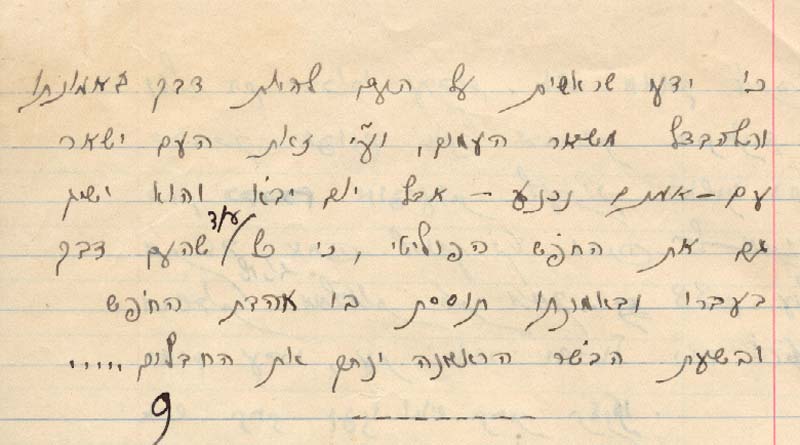 כי ידע שראשית על העם להיות דבק באמונתו
ולהבדל משאר העמים, וע״י זאת העם ישאר
עם – אמנם נכנע – אבל יום יבא והוא ישיג
גם את החפש הפוליטי, כי כל עוד שהעם דבק
בעברו ובאמונתו תוססת בו אהבת החפש
ובשעת הכשר הראשונה ינתק את החבלים.....
9